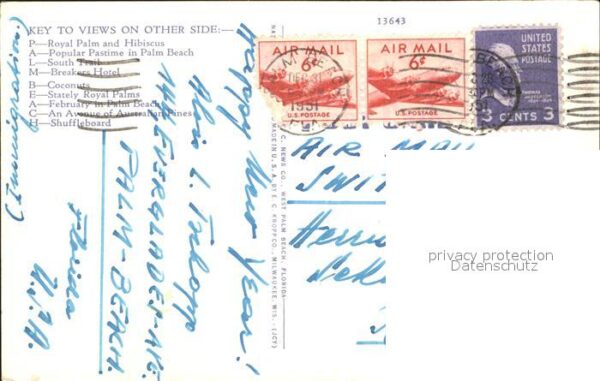 KEY TO VIEWS ON OTHER SIDE:—
P—Royal Palm and Hibiscus
A—Popular Pastime in Palm Beach
L—South Trail
M—Breakers Hotel
B—Coconuts
E—Stately Royal Palms
A—February in Palm Beach
C—An Avenue of Australian Pines
H—Shuffleboard
13643
AIR MAIL
6¢
U.S. POSTAGE
AIR MAIL
6¢
U.S. POSTAGE
UNITED STATES POSTAGE
3 CENTS 3
PALM BEACH
DEC 31
1951
FLA.
C. NEWS CO., WEST PALM BEACH, FLORIDA
MADE IN U.S.A. BY E. C. KROPP CO., MILWAUKEE, WIS. (JCY)
Happy New Year!
EVERGLADES-AVE
PALM-BEACH
Florida
U.S.A.
AIR MAIL
SWIT
Herr
privacy protection
Datenschutz